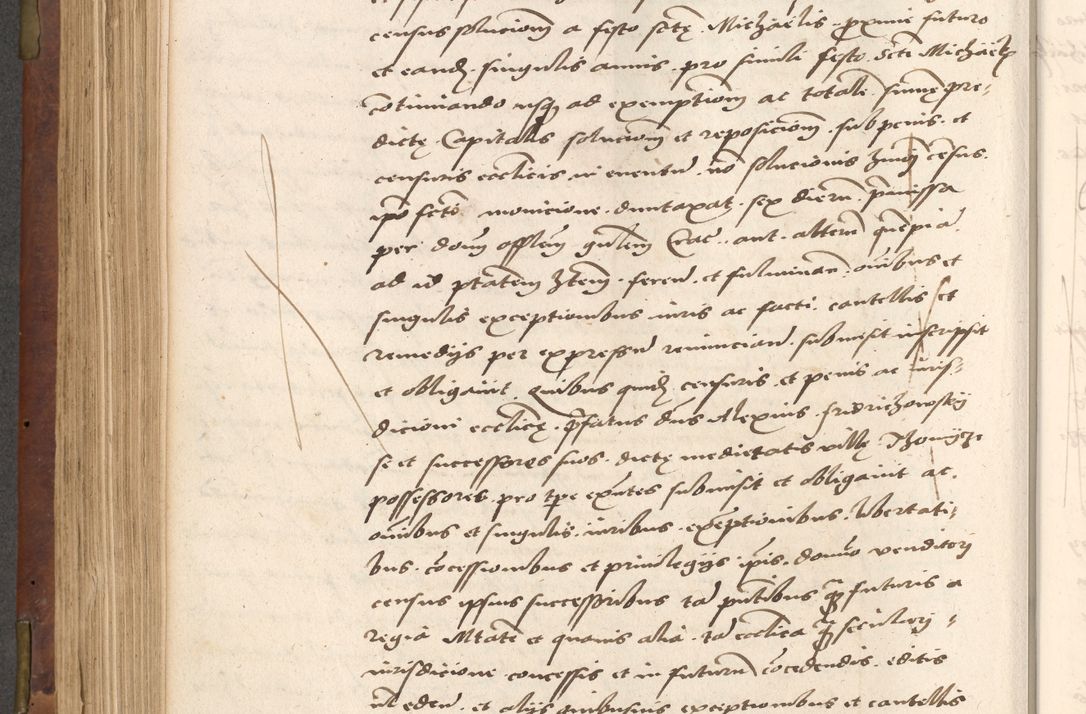 census solucionem a festo sctę Michaelis proxime futuro
et eandem singulis annis pro simili festo Scti Michaelis
cōtinuando usq ad exemptionem ac totale sumę pre-
dictę Capitalis solucionem et reposicionem sub penis et
censuris ecclicis in eventū nō solucionis hmōi cēsus
ipo fcto monicione duntaxat sex dierū pmissa
per dnm offlem gnlem Crac aut alterū quēpiā
ad id ptatem hntem ferend et fulminand omibus et
singulis exceptionibus iuris ac facti cautellis et
remedijs per expressū renunciand submisit inscripsit
et obligavit Quibus quid censuris et penis ac iuris-
dicioni ecclicę pfatus dns Alexius Fridrichowsky
se et successores suos dictę medietatis villę
possessores pro tpe exntes submisit et obligavit ac
omibus et singulis iuribus exceptionibus libertati-
bus cōcessionibus et privilegijs ipis domō venditori
census ipsius successoribus tā pntibus quā futuris a
regia Mtate et quavis alia tā ecclica quā seculari
iurisdicione concessis et in futurū cōcedendis editis
et alijs quibusvis exceptionibus et cautellis